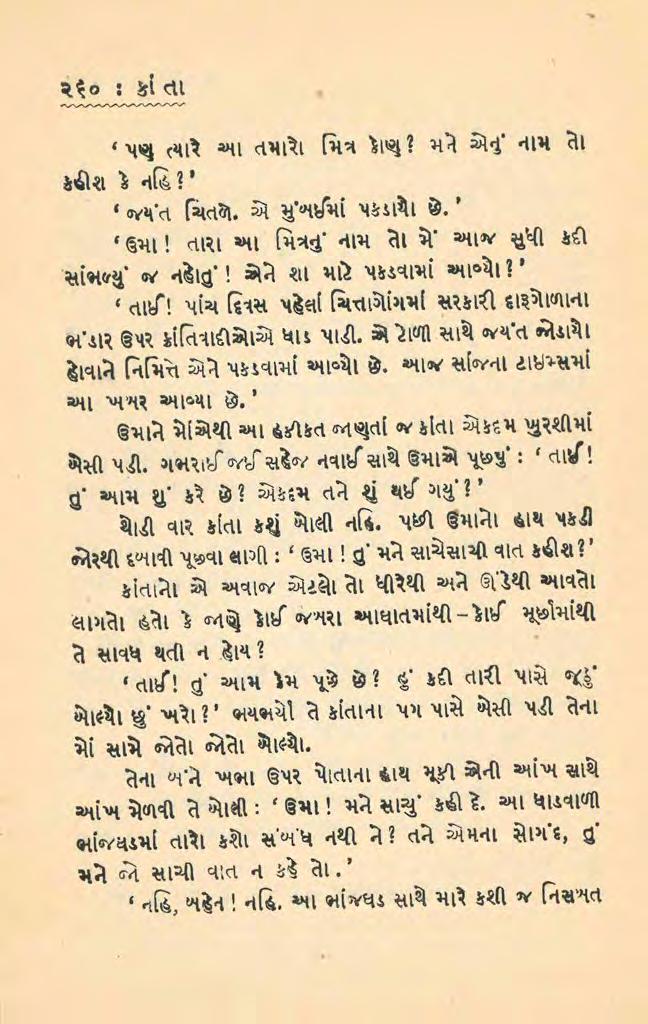 ૨૬૦ : કાંતા
‘પણ ત્યારે આ તમારો મિત્ર કોણ? મને એનું નામ તો
કહીશ કે નહિ?’
‘જયંત ચિતળે. એ મુંબઈમાં પકડાયો છે.’
‘ઉમા! તારા આ મિત્રનું નામ તો મેં આજ સુધી કદી
સાંભળ્યું જ નહોતું! એને શા માટે પકડવામાં આવ્યો?’
‘તાઈ! પાંચ દિવસ પહેલાં ચિત્તાગોંગમાં સરકારી દારૂગોળાના
ભંડાર ઉપર ક્રાંતિવાદીઓએ ધાડ પાડી. એ ટોળી સાથે જયંત જોડાયો
હોવાને નિમિત્તે એને પકડવામાં આવ્યો છે. આજ સાંજના ટાઇમ્સમાં
આ ખબર આવ્યા છે.’
ઉમાને મોંએથી આ હકીકત જાણતાં જ કાંતા એકદમ ખુરશીમાં
બેસી પડી. ગભરાઈ જઈ સહેજ નવાઈ સાથે ઉમાએ પૂછ્યું : ‘તાઈ!
તું આમ શું કરે છે? એકદમ તને શું થઈ ગયું?’
થોડી વાર કાંતા કશું બોલી નહિ. પછી ઉમાનો હાથ પકડી
જોરથી દબાવી પૂછવા લાગી : ‘ઉમા! તું મને સાચેસાચી વાત કહીશ?’
કાંતાનો એ અવાજ એટલો તો ધીરેથી અને ઊંડેથી આવતો
લાગતો હતો કે જાણે કોઈ જબરા આઘાતમાંથી – કોઈ મૂર્છામાંથી
તે સાવધ થતી ન હોય?
‘તાઈ! તું આમ કેમ પૂછે છે? હું કદી તારી પાસે જૂઠું
બોલ્યો છું ખરો?’ ભયભર્યો તે કાંતાના પગ પાસે બેસી પડી તેના
મોં સામે જોતો જોતો બોલ્યો.
તેના બંને ખભા ઉપર પોતાના હાથ મૂકી એની આંખ સાથે
આંખ મેળવી તે બોલી : ‘ઉમા! મને સાચું કહી દે. આ ધાડવાળી
ભાંજઘડમાં તારો કશો સંબંધ નથી ને? તને એમના સોગંદ, તું
મને જો સાચી વાત ન કહે તો.’
‘નહિ, બહેન! નહિ. આ ભાંજઘડ સાથે મારે કશી જ નિસબત